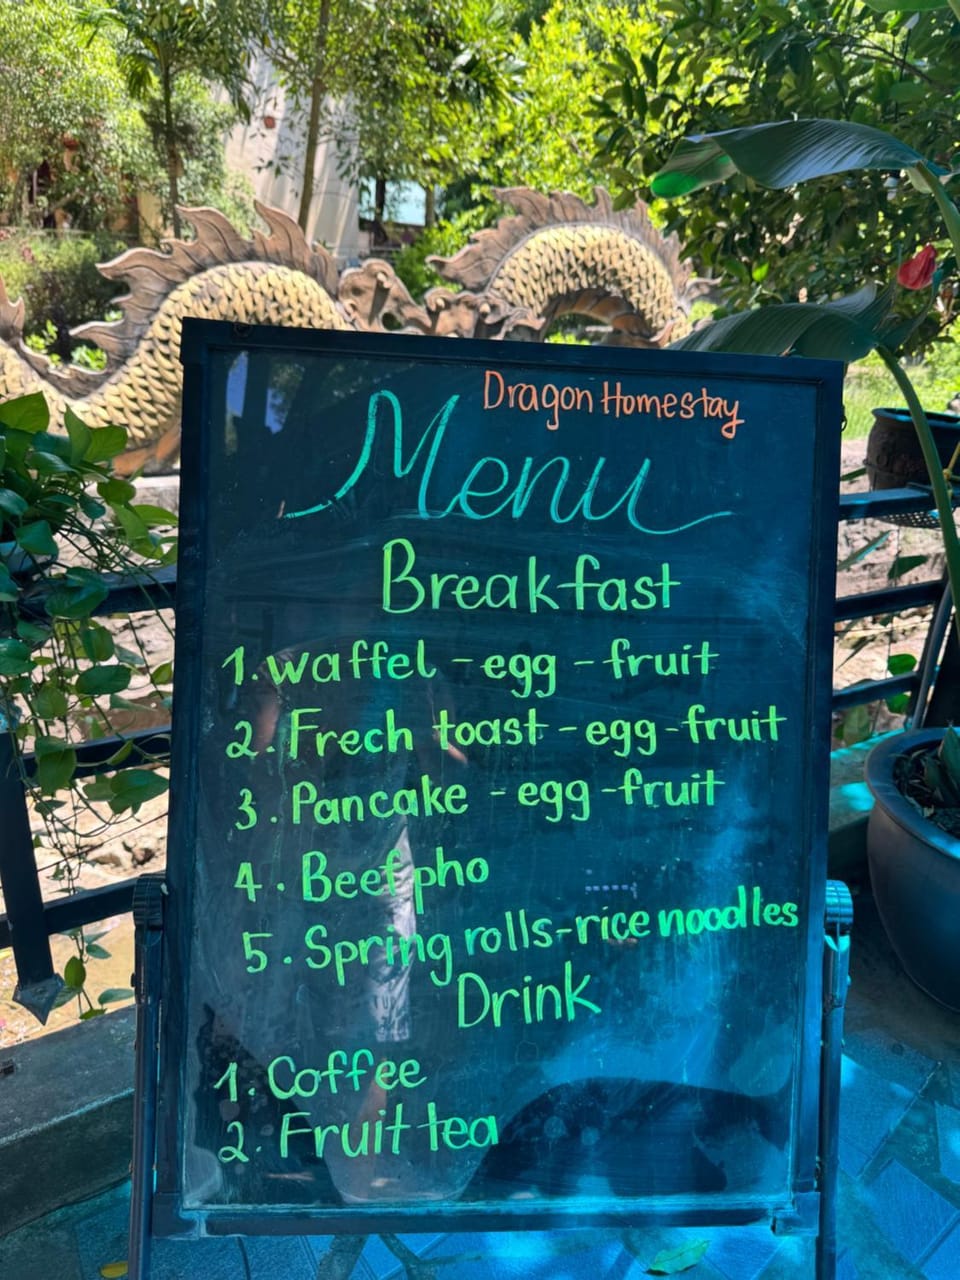 Dragon Homestay
Menu
Breakfast
1. waffel - egg - fruit
2. Frech toast - egg - fruit
3. Pancake - egg - fruit
4. Beef pho
5. Spring rolls - rice noodles
Drink
1. Coffee
2. Fruit tea